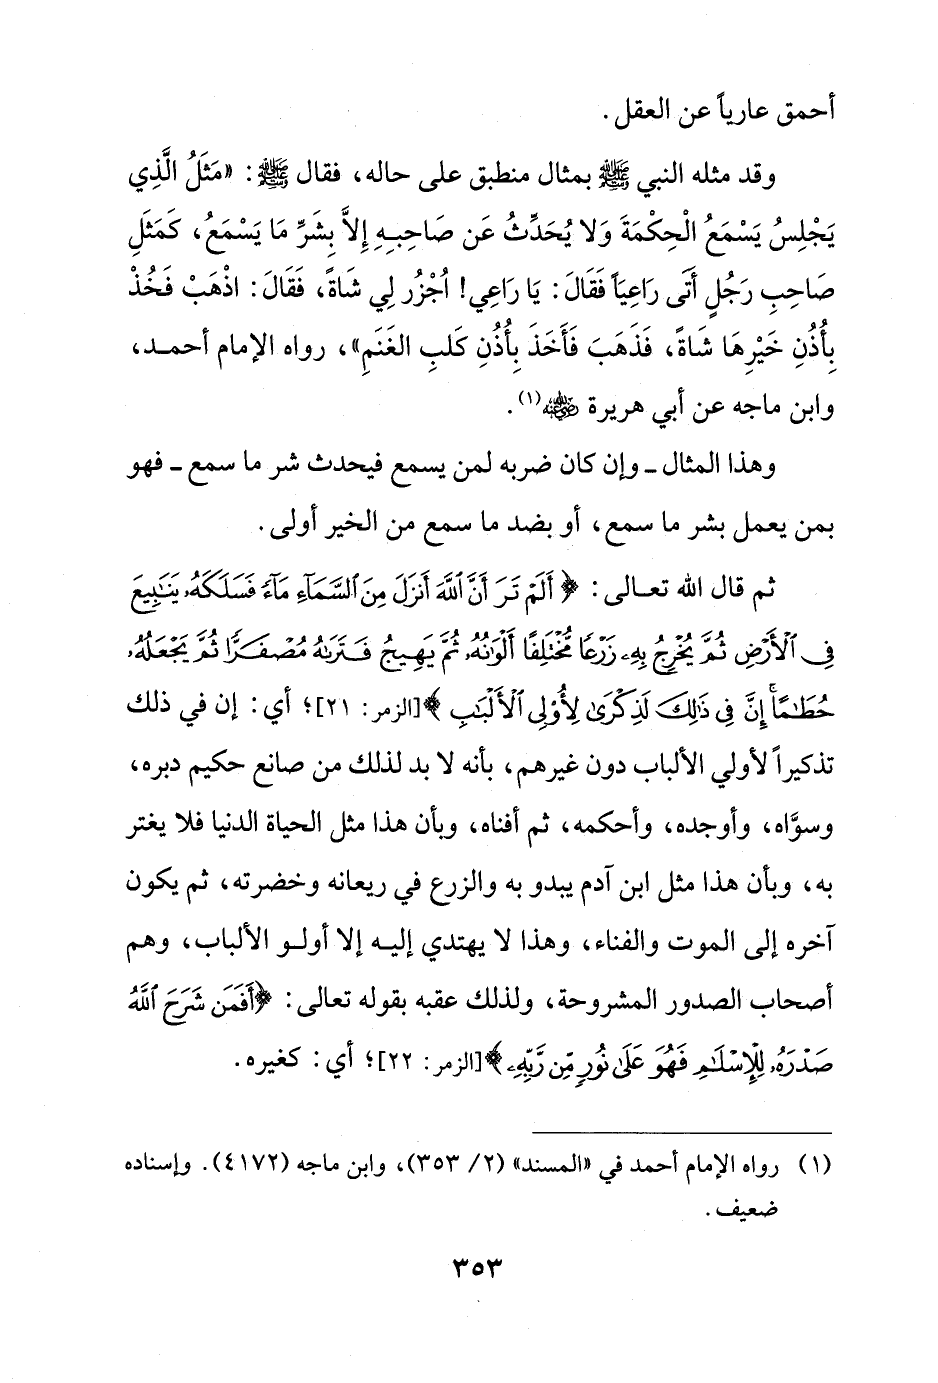 أحمق عارياً عن العقل.
وقد مثله النبي ﷺ بمثال منطبق على حاله، فقال ﷺ: «مَثَلُ الَّذِي
يَجْلِسُ يَسْمَعُ الْحِكْمَةَ وَلا يُحَدِّثُ عَن صَاحِبِهِ إِلاَّ بِشَرِّ مَا يَسْمَعُ، كَمَثَلِ
صَاحِبِ رَجُلٍ أَتَى رَاعِيَاً فَقَالَ: يَا رَاعِي! اُجْزُر لِي شَاةً، فَقَالَ: اذْهَبْ فَخُذْ
بِأُذُنِ خَيْرِهَا شَاةً، فَذَهَبَ فَأَخَذَ بِأُذُنِ كَلبِ الغَنَمِ»، رواه الإمام أحمد،
وابن ماجه عن أبي هريرة رضي الله عنه(١).
وهذا المثال ـ وإن كان ضربه لمن يسمع فيحدث شر ما سمع ـ فهو
بمن يعمل بشر ما سمع، أو بضد ما سمع من الخير أولى.
ثم قال الله تعالى: ﴿أَلَمْ تَرَ أَنَّ ٱللَّهَ أَنزَلَ مِنَ ٱلسَّمَآءِ مَآءً فَسَلَكَهُۥ يَنَٰبِيعَ
فِى ٱلْأَرْضِ ثُمَّ يُخْرِجُ بِهِۦ زَرْعًا مُّخْتَلِفًا أَلْوَٰنُهُۥ ثُمَّ يَهِيجُ فَتَرَىٰهُ مُصْفَرًّا ثُمَّ يَجْعَلُهُۥ
حُطَٰمًا ۚ إِنَّ فِى ذَٰلِكَ لَذِكْرَىٰ لِأُو۟لِى ٱلْأَلْبَٰبِ﴾ [الزمر: ٢١]؛ أي: إن في ذلك
تذكيراً لأولي الألباب دون غيرهم، بأنه لا بد لذلك من صانع حكيم دبره،
وسوَّاه، وأوجده، وأحكمه، ثم أفناه، وبأن هذا مثل الحياة الدنيا فلا يغتر
به، وبأن هذا مثل ابن آدم يبدو به والزرع في ريعانه وخضرته، ثم يكون
آخره إلى الموت والفناء، وهذا لا يهتدي إليه إلا أولو الألباب، وهم
أصحاب الصدور المشروحة، ولذلك عقبه بقوله تعالى: ﴿أَفَمَن شَرَحَ ٱللَّهُ
صَدْرَهُۥ لِلْإِسْلَٰمِ فَهُوَ عَلَىٰ نُورٍ مِّن رَّبِّهِۦ﴾ [الزمر: ٢٢]؛ أي: كغيره.
(١) رواه الإمام أحمد في «المسند» (٢/ ٣٥٣)، وابن ماجه (٤١٧٢). وإسناده
ضعيف.
٣٥٣